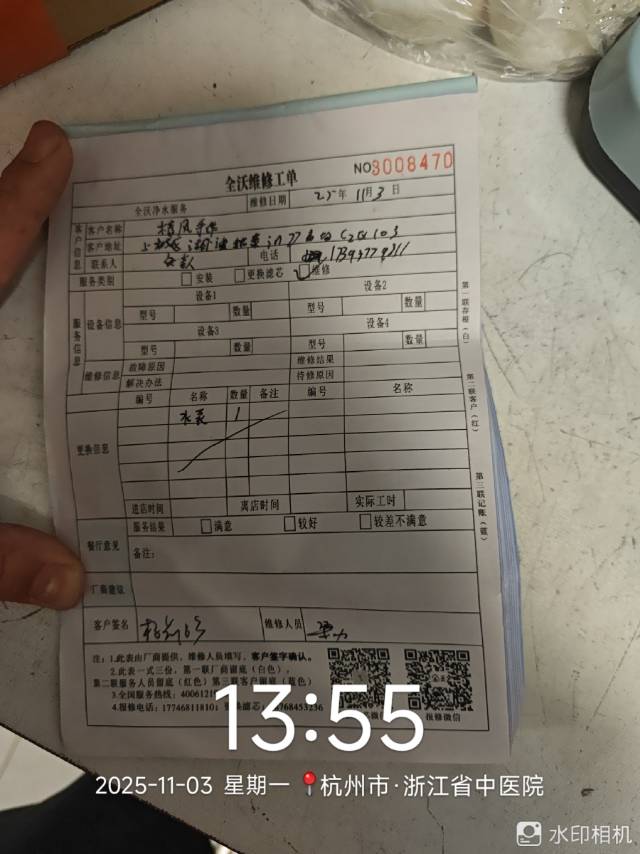 全沃维修工单
NO3008470
全沃净水服务 维修日期 25年11月3日
客户信息
客户名称
客户地址
联系人 电话
服务类别 安装 更换滤芯 维修
服务信息
设备信息
设备1 设备2
型号 数量 型号 数量
设备3 设备4
型号 数量 型号 数量
维修信息 故障原因 维修结果
解决办法 待修原因
更换信息
编号 名称 数量 备注 编号 名称
水泵 1
进店时间 离店时间 实际工时
餐厅意见
服务结果 满意 较好 较差不满意
备注:
厂商意议
客户签名 维修人员
注:1.此表由厂商提供,维修人员填写,客户签字确认。
2.此表一式三份,第一联厂商留底(白色),
第二联服务人员留底(红色)第三联客户留底(蓝色)
3.全国服务热线:4006121
4.报修电话:17746811810;
报修微信
第一联存根(白)
第二联客户(红)
第三联记账(蓝)
13:55
2025-11-03 星期一 杭州市·浙江省中医院
水印相机